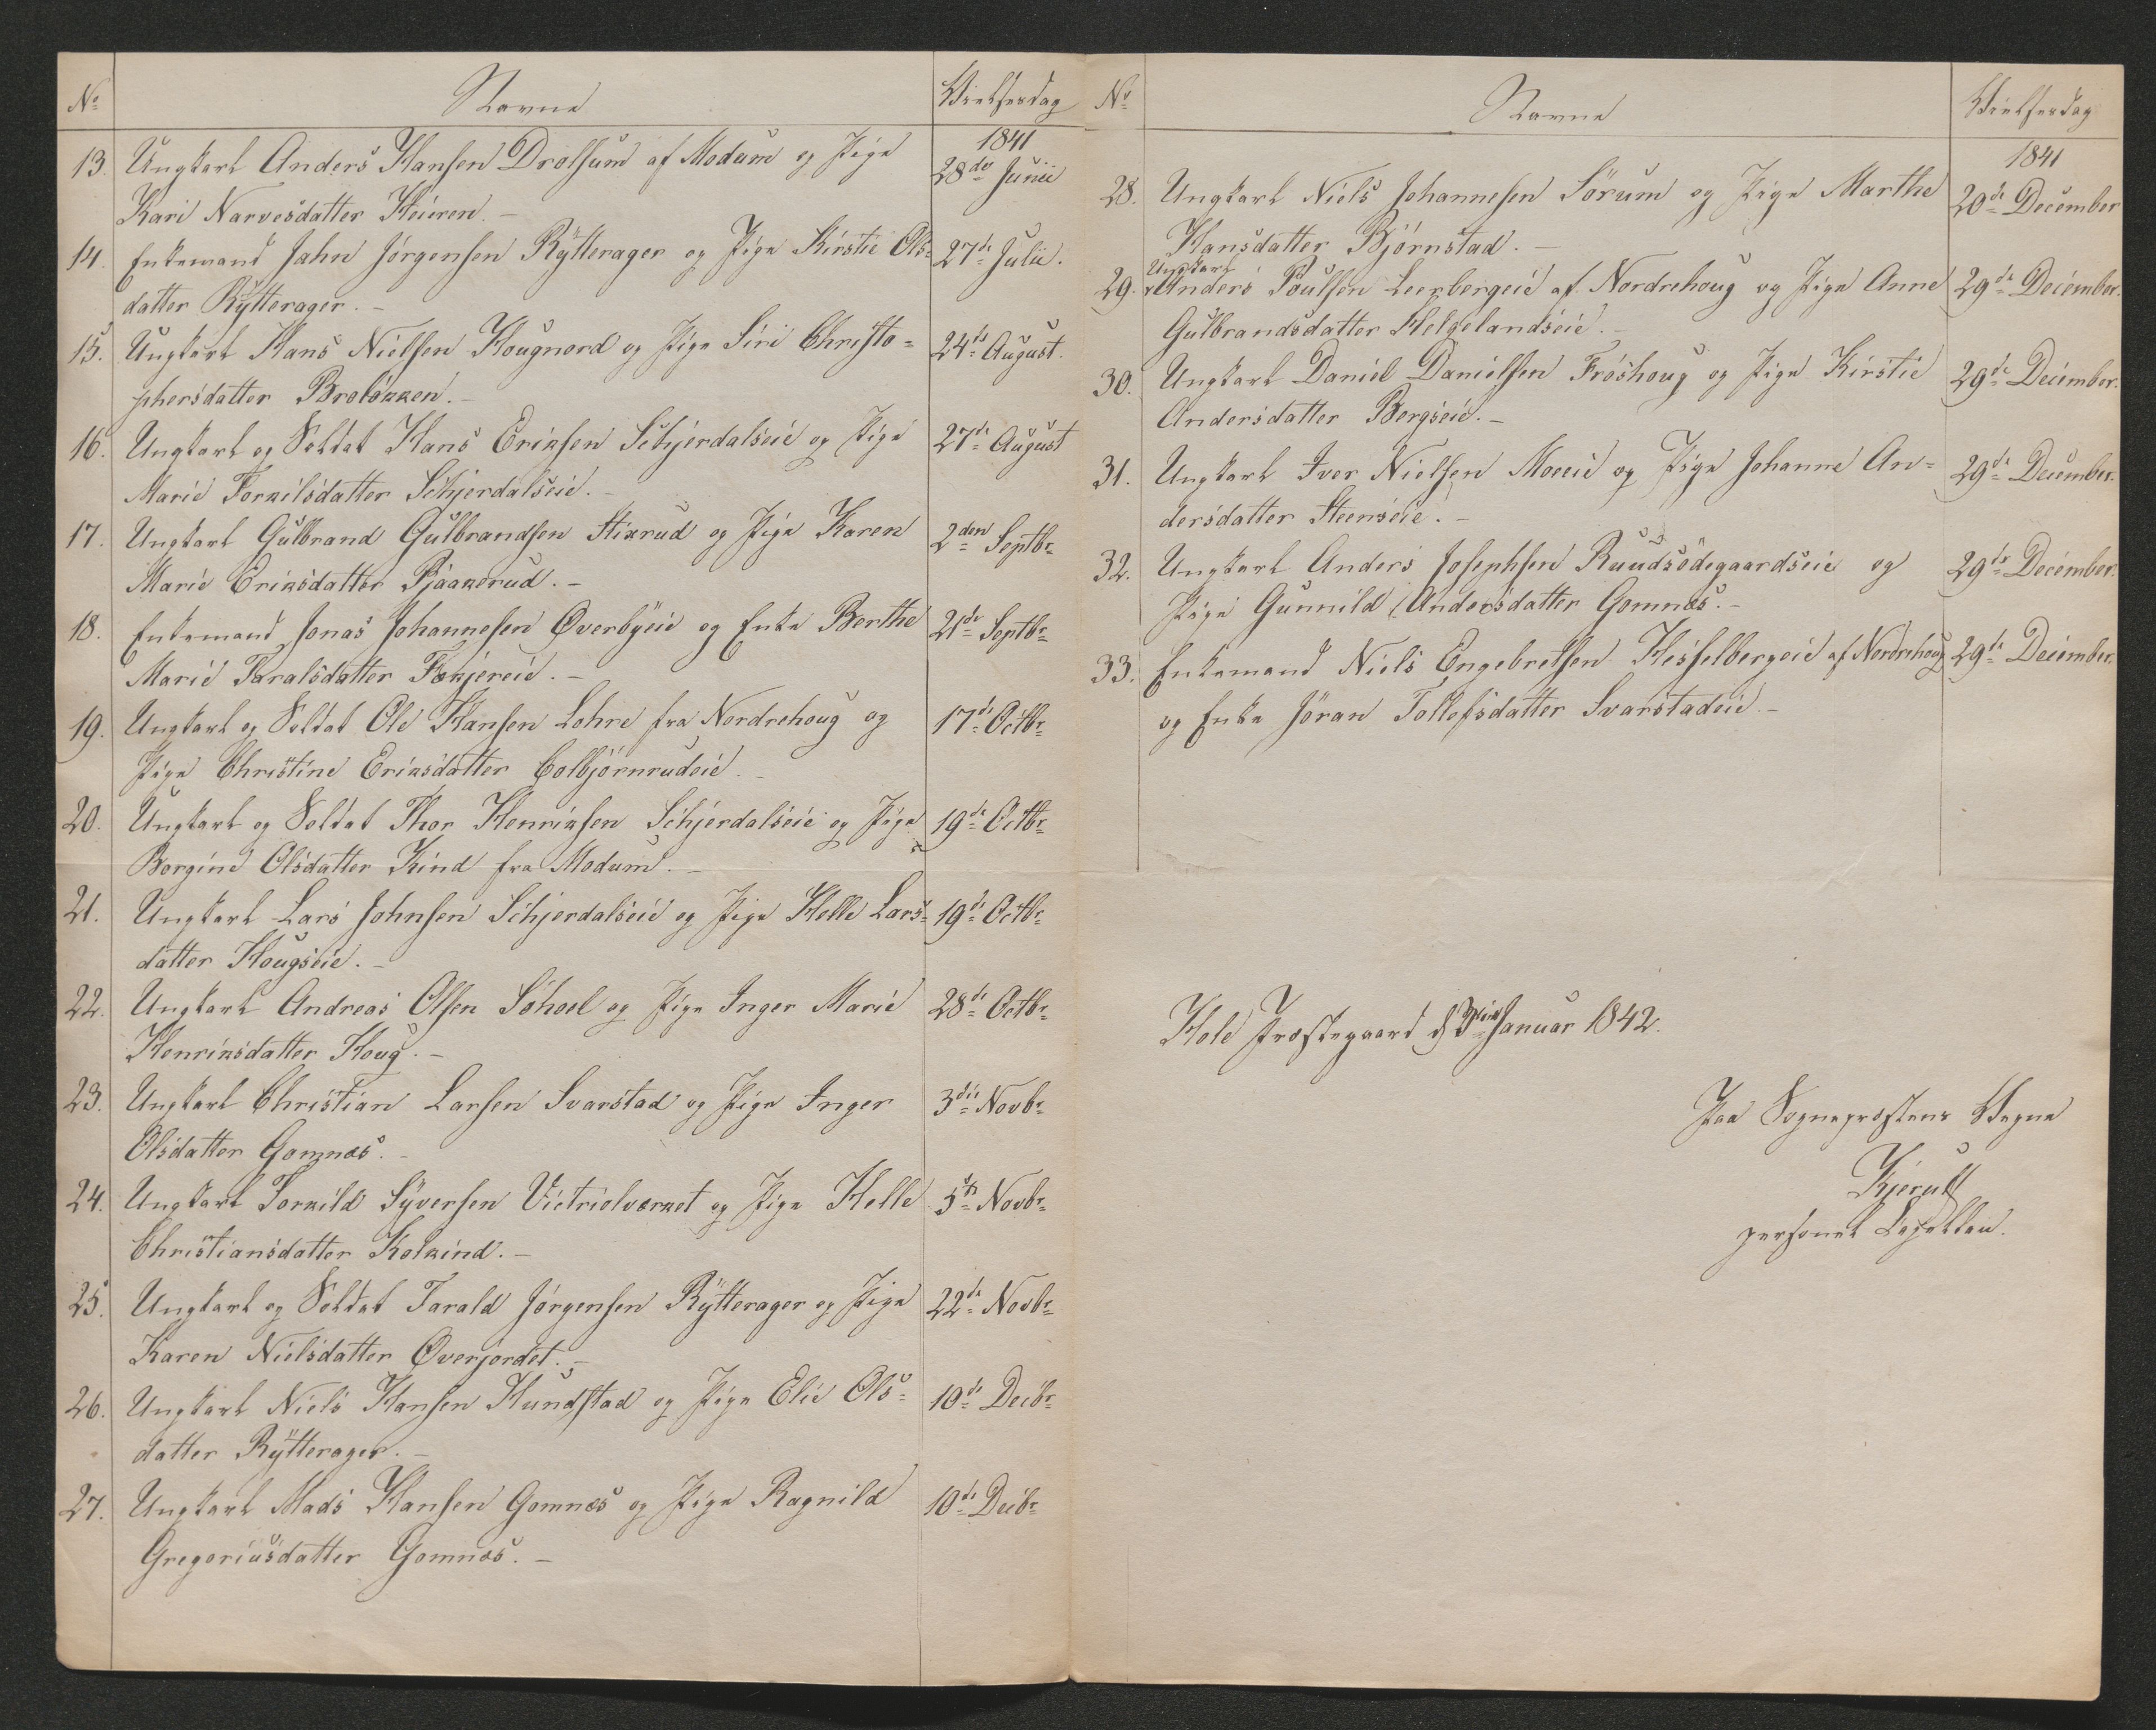 No Navne Vielsesdag
1841
13. Ungkarl Anders Hansen Drolsum af Modum og Pige 28de Junii
Kari Narvesdatter Heieren.-
14. Enkemand Jahn Jörgensen Rÿtterager og Pige Kirstie Ols= 27de Julii.
datter Rÿtterager.-
15. Ungkarl Hans Nielsen Hougnord og Pige Siri Christo= 24de August.
phersdatter Brelökken.-
16. Ungkarl og Soldat Hans Eriksen Schjerdalseie og Pige 27de August
Marie Torkilsdatter Schjerdalseie.-
17. Ungkarl Gulbrand Gulbrandsen Stixrud og Pige Karen 2den Septbr
Marie Eriksdatter Pjaakerud.-
18. Enkemand Jonas Johannesen Överbÿeie og Enke Berthe 21de Septbr
Marie Taralsdatter Fækjereie.-
19. Ungkarl og Soldat Ole Hansen Lohre fra Nordrehoug og 17de Octbr
Pige Christine Eriksdatter Colbjörnrudeie.-
20. Ungkarl og Soldat Thor Henriksen Schjerdalseie og Pige 19de Octbr
Borgine Olsdatter Kind fra Modum.-
21. Ungkarl Lars Johnsen Schjerdalseie og Pige Helle Lars= 19de Octbr
datter Hougseie.-
22. Ungkarl Andreas Olsen Söhoel og Pige Inger Marie 28de Octbr
Henriksdatter Houg.-
23. Ungkarl Christian Larsen Svarstad og Pige Inger 3die Novbr
Olsdatter Gomnæs.-
24. Ungkarl Torkild Sÿversen Victriolværket og Pige Helle 5te Novbr
Christiansdatter Kolkind.-
25. Ungkarl og Soldat Tarald Jörgensen Rÿtterager og Pige 22de Novbr
Karen Nielsdatter Överjordet.-
26. Ungkarl Niels Hansen Hundstad og Pige Elie Ols= 10de Decbr
datter Rÿtterager.-
27. Ungkarl Mads Hansen Gomnæs og Pige Ragnild 10de Decbr
Gregoriusdatter Gomnæs.-
No Navne Vielsesdag
1841
28. Ungkarl Niels Johannesen Sörum og Pige Marthe 20de December
Hansdatter Björnstad.-
Ungkarl
29. Anders Poulsen Leerbergeie af Nordrehoug og Pige Anne 29de December.
Gulbrandsdatter Helgelandseie.-
30. Ungkarl Daniel Danielsen Fröshoug og Pige Kirstie 29de December.
Andersdatter Bergseie.-
31. Ungkarl Iver Nielsen Moeeie og Pige Johanne An= 29de December.
dersdatter Steenseie.-
32. Ungkarl Anders Josephsen Ruudsödegaardseie og 29de December.
Pige Gunnild Andersdatter Gomnæs.-
33. Enkemand Niels Engebretsen Hesselbergeie af Nordrehoug 29de December.
og Enke Jöran Tollefsdatter Svarstadeie.-
Hole Præstegaard d 3die Januar 1842.
Paa Sognepræstens Vegne
Kjerulf
personel Capellan.